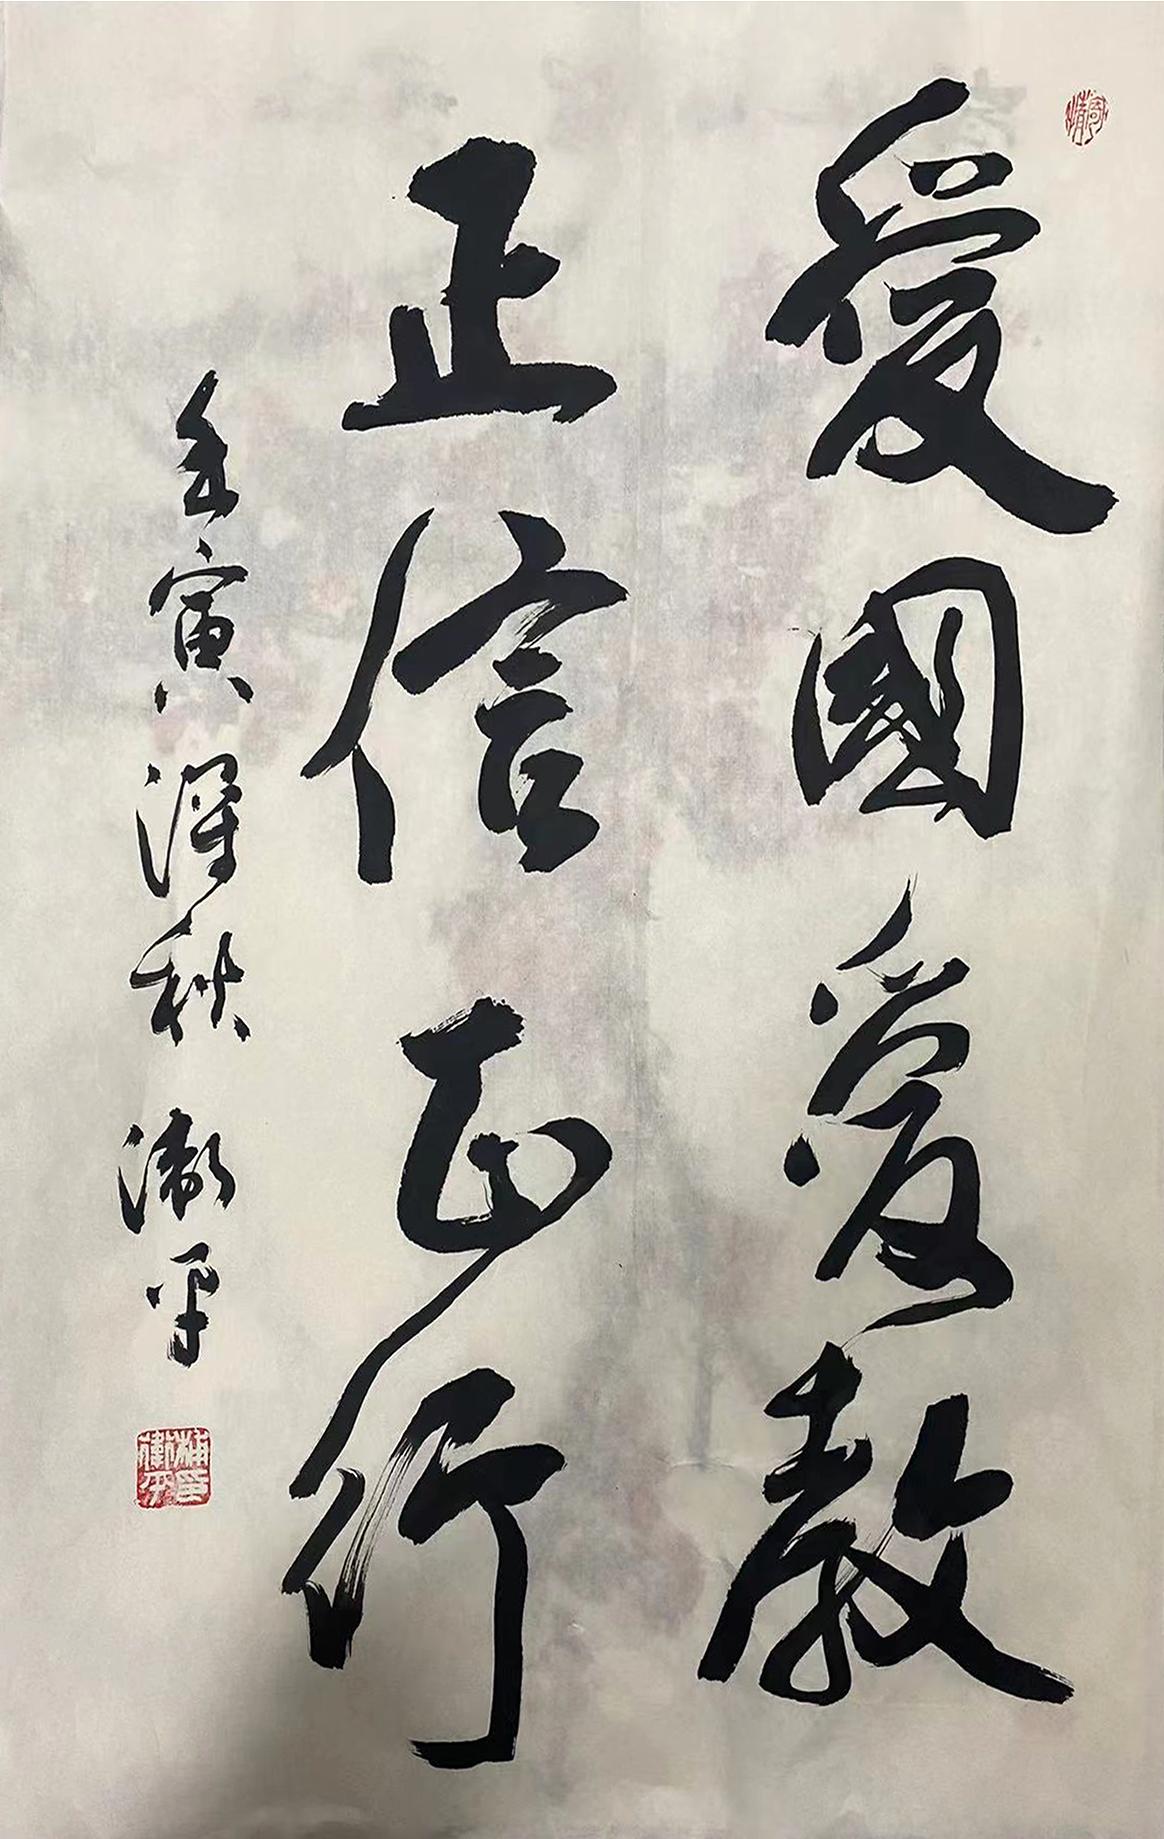 愛國愛教
正信正行
壬寅深秋 平